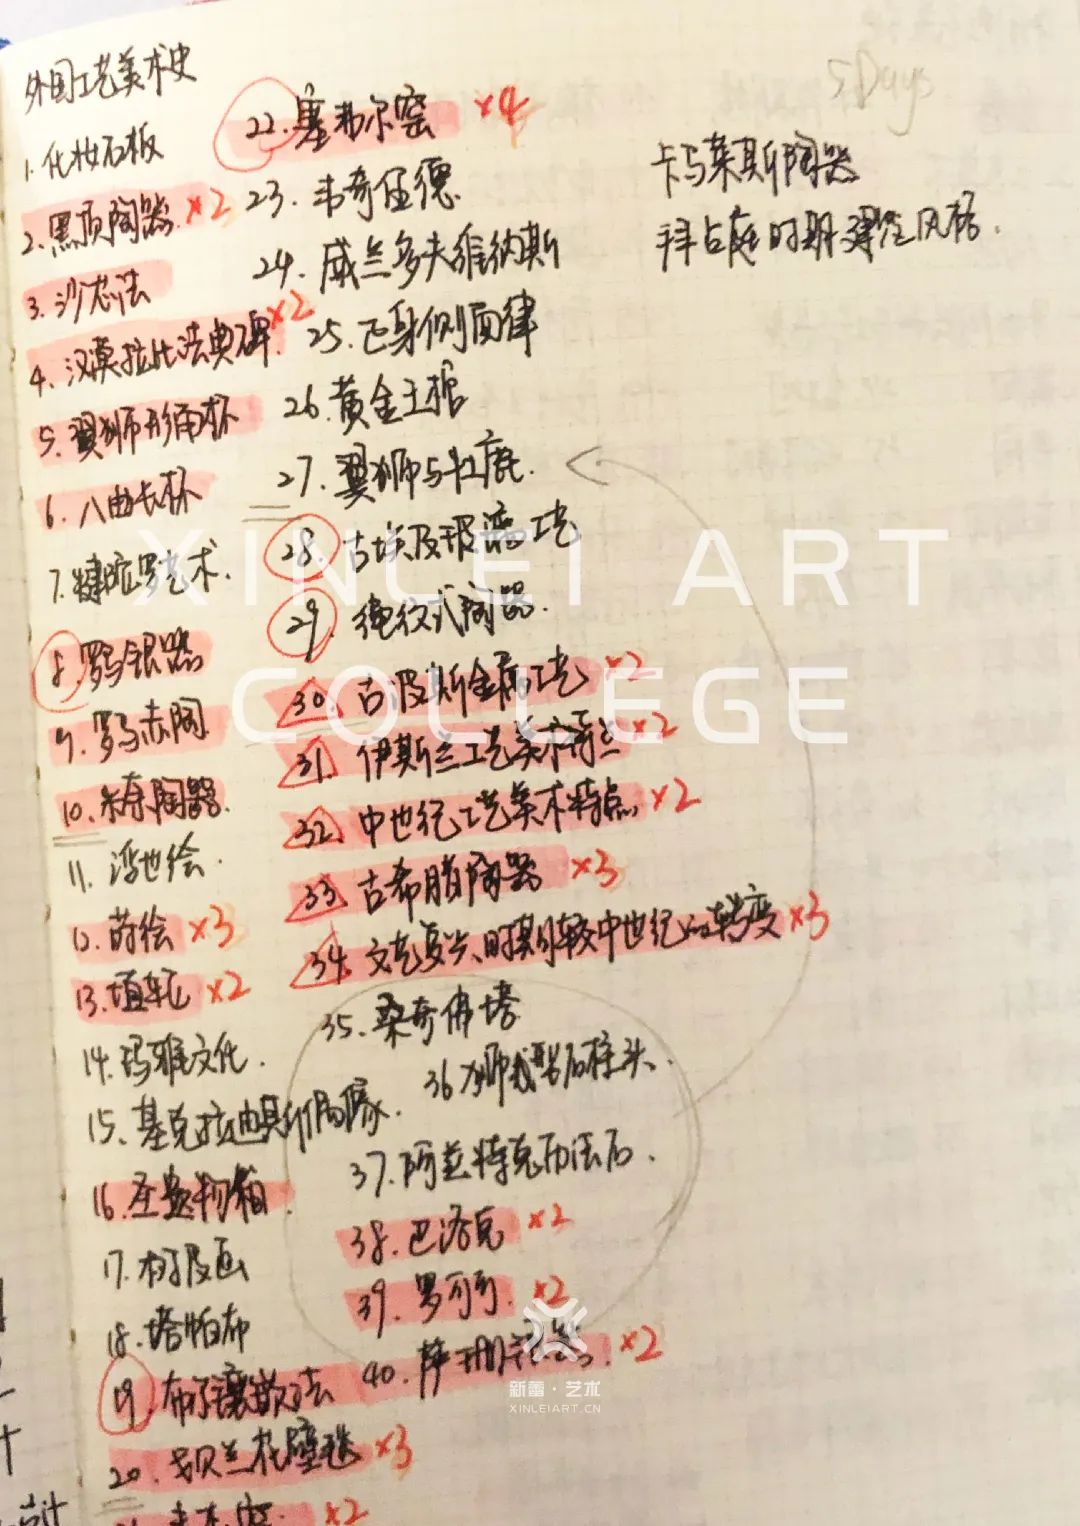 外国工艺美术史
1. 化妆石板
2. 黑顶陶器 ×2
3. 沙芯法
4. 汉漠拉比法典碑 ×2
5. 翼狮形角杯
6. 八曲长杯
7. 犍陀罗艺术.
8. 罗马银器
9. 罗马赤陶
10. 米奈陶器.
11. 浮世绘.
12. 莳绘 ×3
13. 植轮 ×2
14. 玛雅文化.
15. 基克拉迪具形偶像.
16. 圣遗物箱.
17. 树皮画
18. 塔帕布
19. 布尔镶嵌法
20. 戈贝兰花壁毯 ×3
21. ×2
22. 塞弗尔窑 ×4
23. 韦奇伍德
24. 威兰多夫维纳斯
25. 正身侧面律
26. 黄金王棺
27. 翼狮与牡鹿.
28. 古埃及玻璃工艺
29. 绳纹式陶器.
30. 古波斯金属工艺 ×2
31. 伊斯兰工艺美术特点 ×2
32. 中世纪工艺美术特点 ×2
33. 古希腊陶器 ×3
34. 文艺复兴时期较中世纪的转变 ×3
35. 桑奇佛塔
36 狮式型石柱头.
37. 阿兹特克历法石.
38. 巴洛克 ×2
39. 罗可可. ×2
40. 萨珊银器. ×2
5 Days
卡马莱斯陶器
拜占庭时期建筑风格.
XINLEI ART
COLLEGE
新蕾·艺术
XINLEIART.CN
计